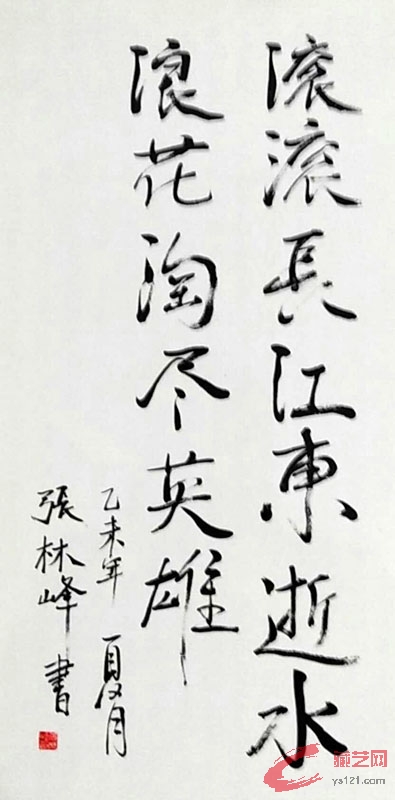 滚滚長江東逝水
浪花淘尽英雄
乙未年 夏月
張林峰 書
藏艺网
ys121.com